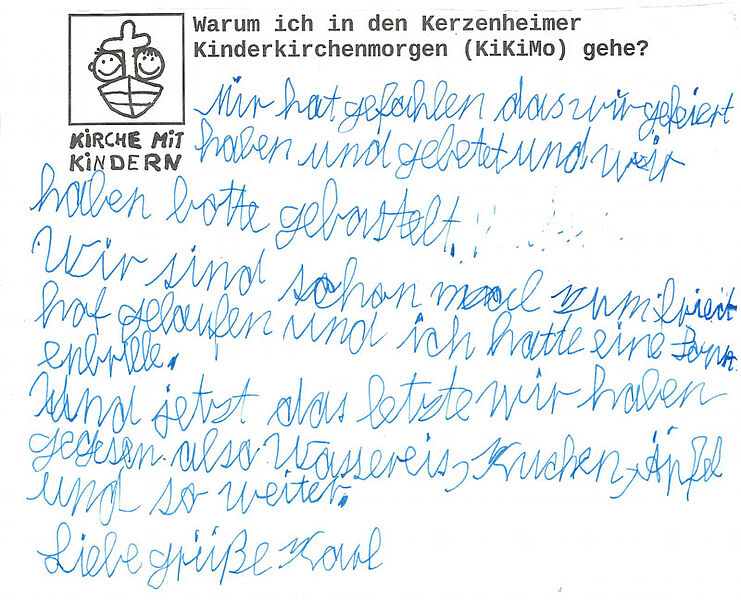 Warum ich in den Kerzenheimer
Kinderkirchenmorgen (KiKiMo) gehe?
KiRCHE MiT
KiNDERN
Mir hat gefahlen das wir gefeiert
haben und gebetet und wir
haben botte gebastelt!
Wir sind schon mal zum fried
hof gelaufen und ich hatte eine Sonn
enbrille.
Und jetzt das letzte wir haben
gegesen also Wassereis, Kuchen, Äpfel
und so weiter.
Liebe grüße Karl